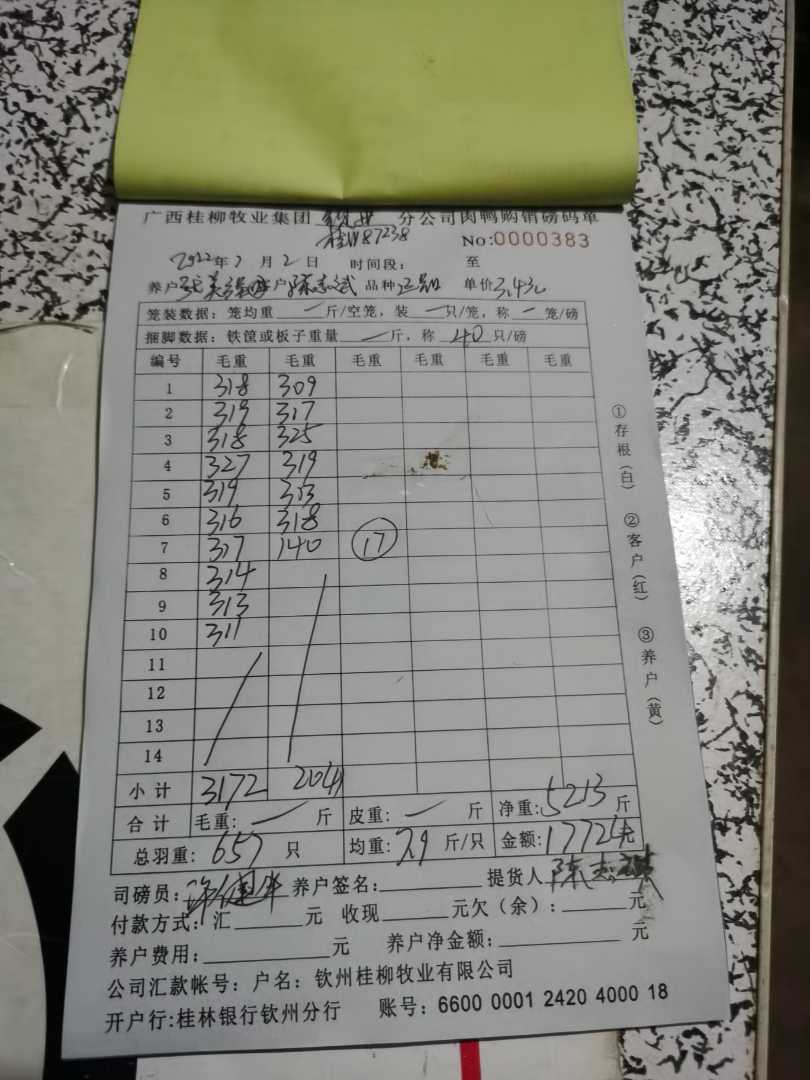 广西桂柳牧业集团 分公司肉鸭购销磅码单
桂 87238
No:0000383
2022年7月2日 时间段: 至
养户 客户陈志斌 品种 单价3.4元
笼装数据: 笼均重 一 斤/空笼, 装 一 只/笼, 称 一 笼/磅
捆脚数据: 铁筐或板子重量 一 斤, 称 40 只/磅
编号 毛重 毛重 毛重 毛重 毛重 毛重
1 318 309
2 319 317
3 318 325
4 327 319
5 319 313
6 316 318
7 317 140 17
8 314
9 313
10 311
11
12
13
14
小计 3172 2041
合计 毛重: 一 斤 皮重: 一 斤 净重: 5213 斤
总羽重: 657 只 均重: 7.9 斤/只 金额: 17724元
司磅员: 养户签名: 提货人 陈志斌
付款方式: 汇 元 收现 元欠(余): 元
养户费用: 元 养户净金额: 元
公司汇款帐号: 户名: 钦州桂柳牧业有限公司
开户行:桂林银行钦州分行 账号: 6600 0001 2420 4000 18
①存根(白) ②客户(红) ③养户(黄)